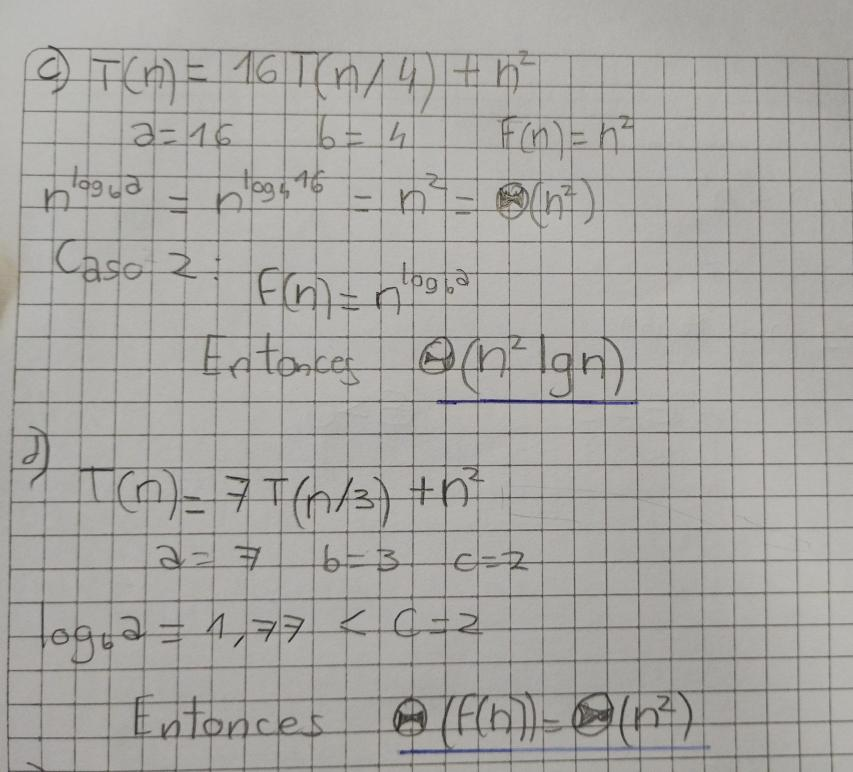 c) T(n) = 16 T(n/4) + n²
a = 16 b = 4 F(n) = n²
n^log_b a = n^log_4 16 = n² = Θ(n²)
Caso 2: F(n) = n^log_b a
Entonces Θ(n² lg n)
d)
T(n) = 7 T(n/3) + n²
a = 7 b = 3 c = 2
log_b a = 1,77 < C = 2
Entonces Θ(F(n)) = Θ(n²)